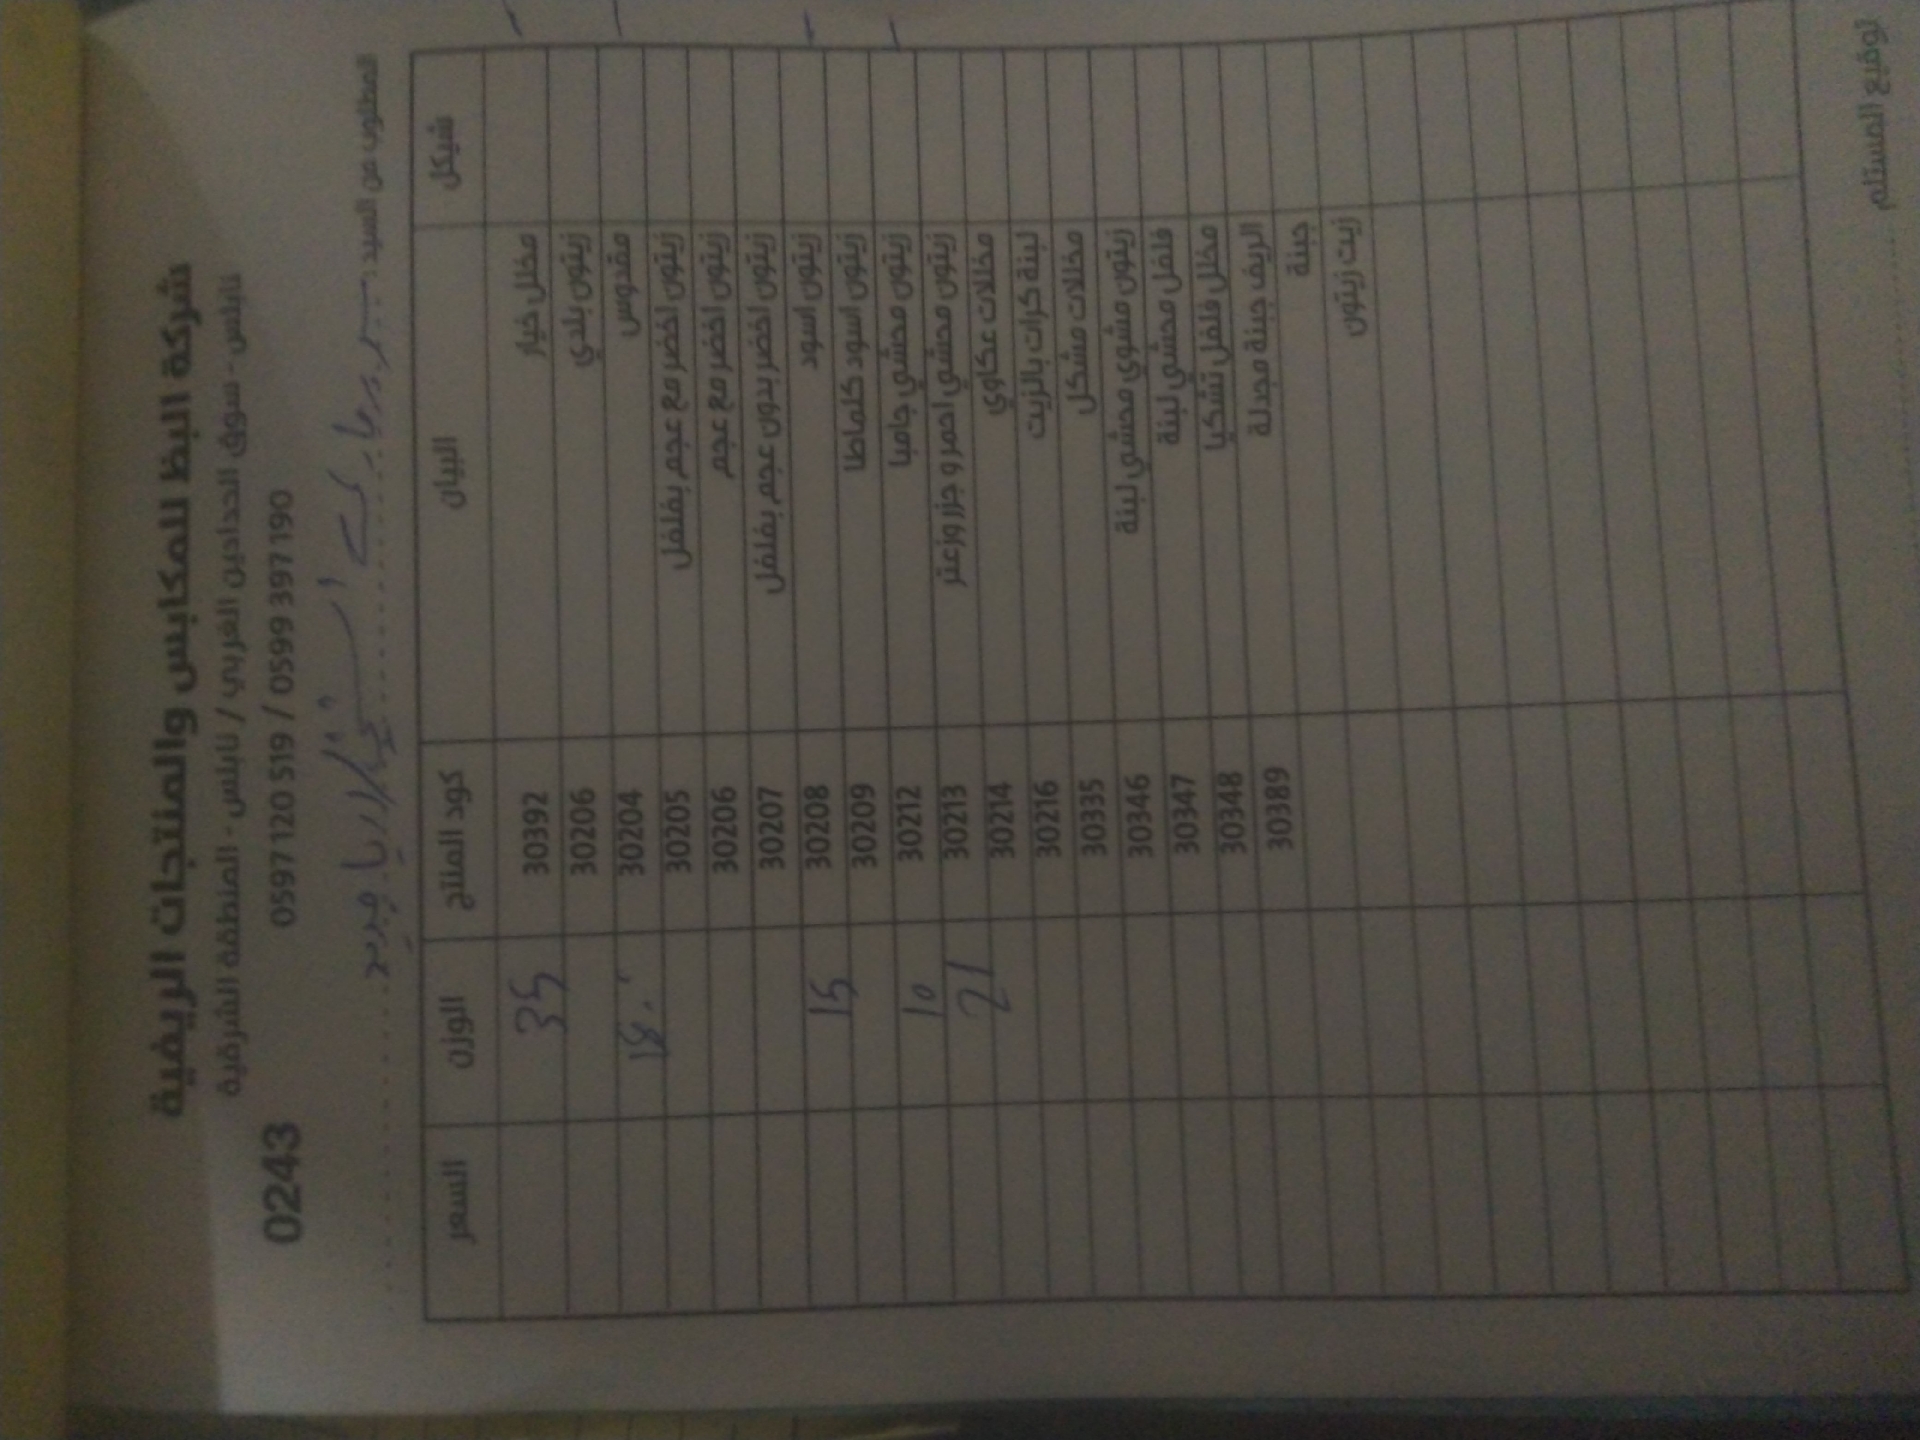 شركة البظ للمكابس والمنتجات الريفية
نابلس - سوق الحدادين الغربي / نابلس - المنطقة الشرقية
0597 120 519 / 0599 397 190
02243
المطلوب من السيد: سوبر ماركت
شيكل البيان كود المنتج الوزن السعر
مخلل خيار 30392 35
زيتون بلدي 30206
مقدوس 30204
زيتون اخضر مع عجم بفلفل 30205
زيتون اخضر مع عجم 30206
زيتون اخضر بدون عجم بفلفل 30207
زيتون اسود 30208 15
زيتون اسود كلماطا 30209
زيتون محشي جامبا 30212 10
زيتون محشي احمر و جزر وزعتر 30213 21
مخللات عكاوي 30214
لبنة كرات بالزيت 30216
مخللات مشكل 30335
زيتون مشوي محشي لبنة 30346
فلفل محشي لبنة 30347
مخلل فلفل تشكيا 30348
الريف جبنة مجدلة 30389
جبنة
زيت زيتون
توقيع المستلم